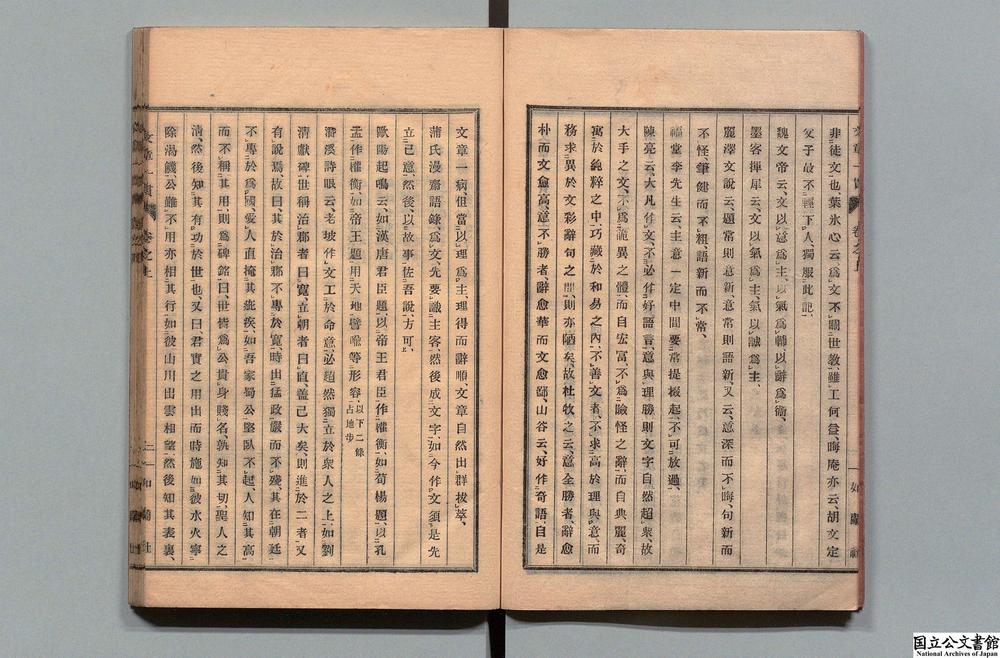 非徒文也葉氷心云爲文不關世敎雖工何益晦庵亦云胡文定
父子最不輕下人獨服此記
魏文帝云文以意爲主以氣爲輔以辭爲衞
墨客揮犀云文以氣爲主氣以誠爲主
麗澤文說云題常則意新意常則語新又云意深而不晦句新而
不怪筆健而不粗語新而不常
福堂李先生云主意一定中間要常提掇起不可放過
陳亮云大凡作文不必作好語言意與理勝則文字自然超衆故
大手之文不爲詭異之體而自宏富不爲險怪之辭而自典麗奇
寓於純粹之中巧藏於和易之內不善文者不求高於理與意而
務求異於文彩辭句之間則亦陋矣故杜牧之云意全勝者辭愈
朴而文愈高意不勝者辭愈華而文愈鄙山谷云好作奇語自是
文章一病但當以理爲主理得而辭順文章自然出群拔萃
蒲氏漫齋語錄爲文先要識主客然後成文字如今作文須是先
立己意然後以故事佐吾說方可
歐陽起鳴云如漢唐君臣題以帝王君臣作權衡如荀楊題以孔
孟作權衡如帝王題用天地譬喩等形容以下二條占地步
潛溪詩眼云老坡作文工於命意必超然獨立於衆人之上如劉
淸獻碑世稱治郡者曰寬立朝者曰直蓋己大矣則進於二者又
有說焉故曰其於治郡不專於寬時出猛政嚴而不殘其在朝廷
不專於爲國愛人直掩其疵疾如吾家蜀公堅臥不起人知其高
而不稱其用則爲碑銘曰世皆爲公貴身賤名孰知其切聖人之
淸然後知其有功於世也又曰君實之用出而時施如彼水火寧
除渴饑公雖不用亦相其行如彼山川出雲相望然後知其表裏
文章一貫 卷之上
如蘭社